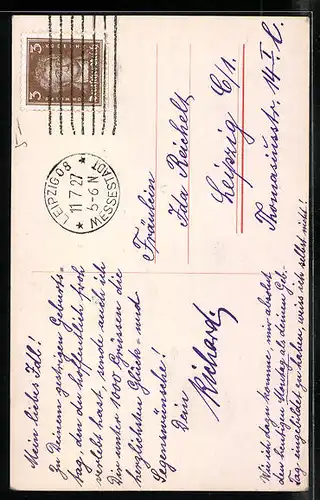 3
LEIPZIG 08
11 7 27
5-6 N
MESSESTADT
5-
Fräulein
Ida Reichelt
Leipzig C/1.
Thomasiusstr. 14 I l.
Mein liebes Idl!
Zu Deinem gestrigen Geburts-
tag, den du hoffentlich froh
verlebt hast, sende auch ich
Dir unter 1000 Grüssen die
herzlichsten Glück- und
Segenswünsche!
Dein
Richard
Wie ich dazu komme, mir absolut
den heutigen Montag als deinen Geb.
Tag eingebildet zu haben, weiss ich selbst nicht!